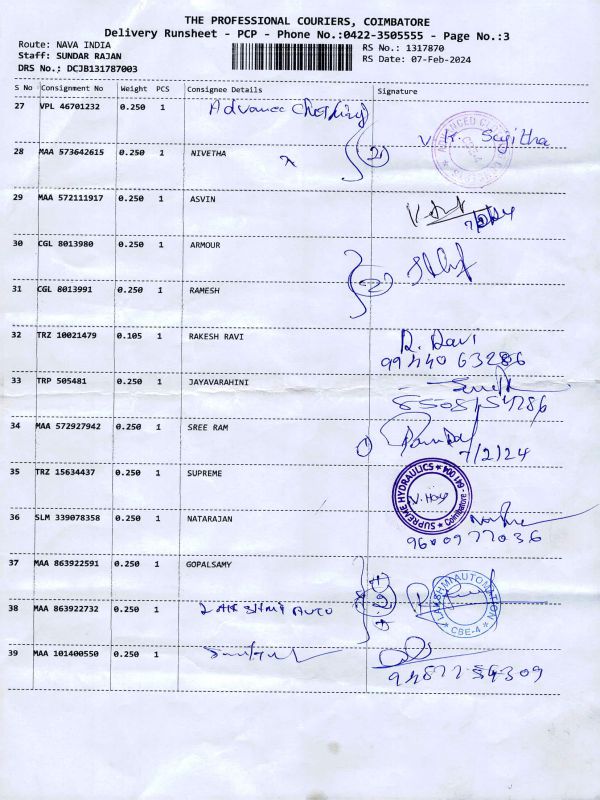 THE PROFESSIONAL COURIERS, COIMBATORE
Delivery Runsheet - PCP - Phone No.:0422-3505555 - Page No.:3
Route: NAVA INDIA
RS No.: 1317870
Staff: SUNDAR RAJAN
RS Date: 07-Feb-2024
DRS No.: DCJB131787003
S No Consignment No Weight PCS Consignee Details Signature
27 VPL 46701232 0.250 1 Advance
V. K. Sujitha
28 MAA 573642615 0.250 1 NIVETHA
29 MAA 572111917 0.250 1 ASVIN
30 CGL 8013980 0.250 1 ARMOUR
31 CGL 8013991 0.250 1 RAMESH
2
32 TRZ 10021479 0.105 1 RAKESH RAVI R. Ravi
99440 63286
33 TRP 505481 0.250 1 JAYAVARAHINI
34 MAA 572927942 0.250 1 SREE RAM
1
7/2/24
35 TRZ 15634437 0.250 1 SUPREME
SUPREME HYDRAULICS * Coimbatore - 641 004 *
36 SLM 339078358 0.250 1 NATARAJAN
9600977036
37 MAA 863922591 0.250 1 GOPALSAMY
38 MAA 863922732 0.250 1 LAKSHMI AUTO
LAKSHMI AUTOMATION * CBE-4 *
39 MAA 101400550 0.250 1
94877 54309